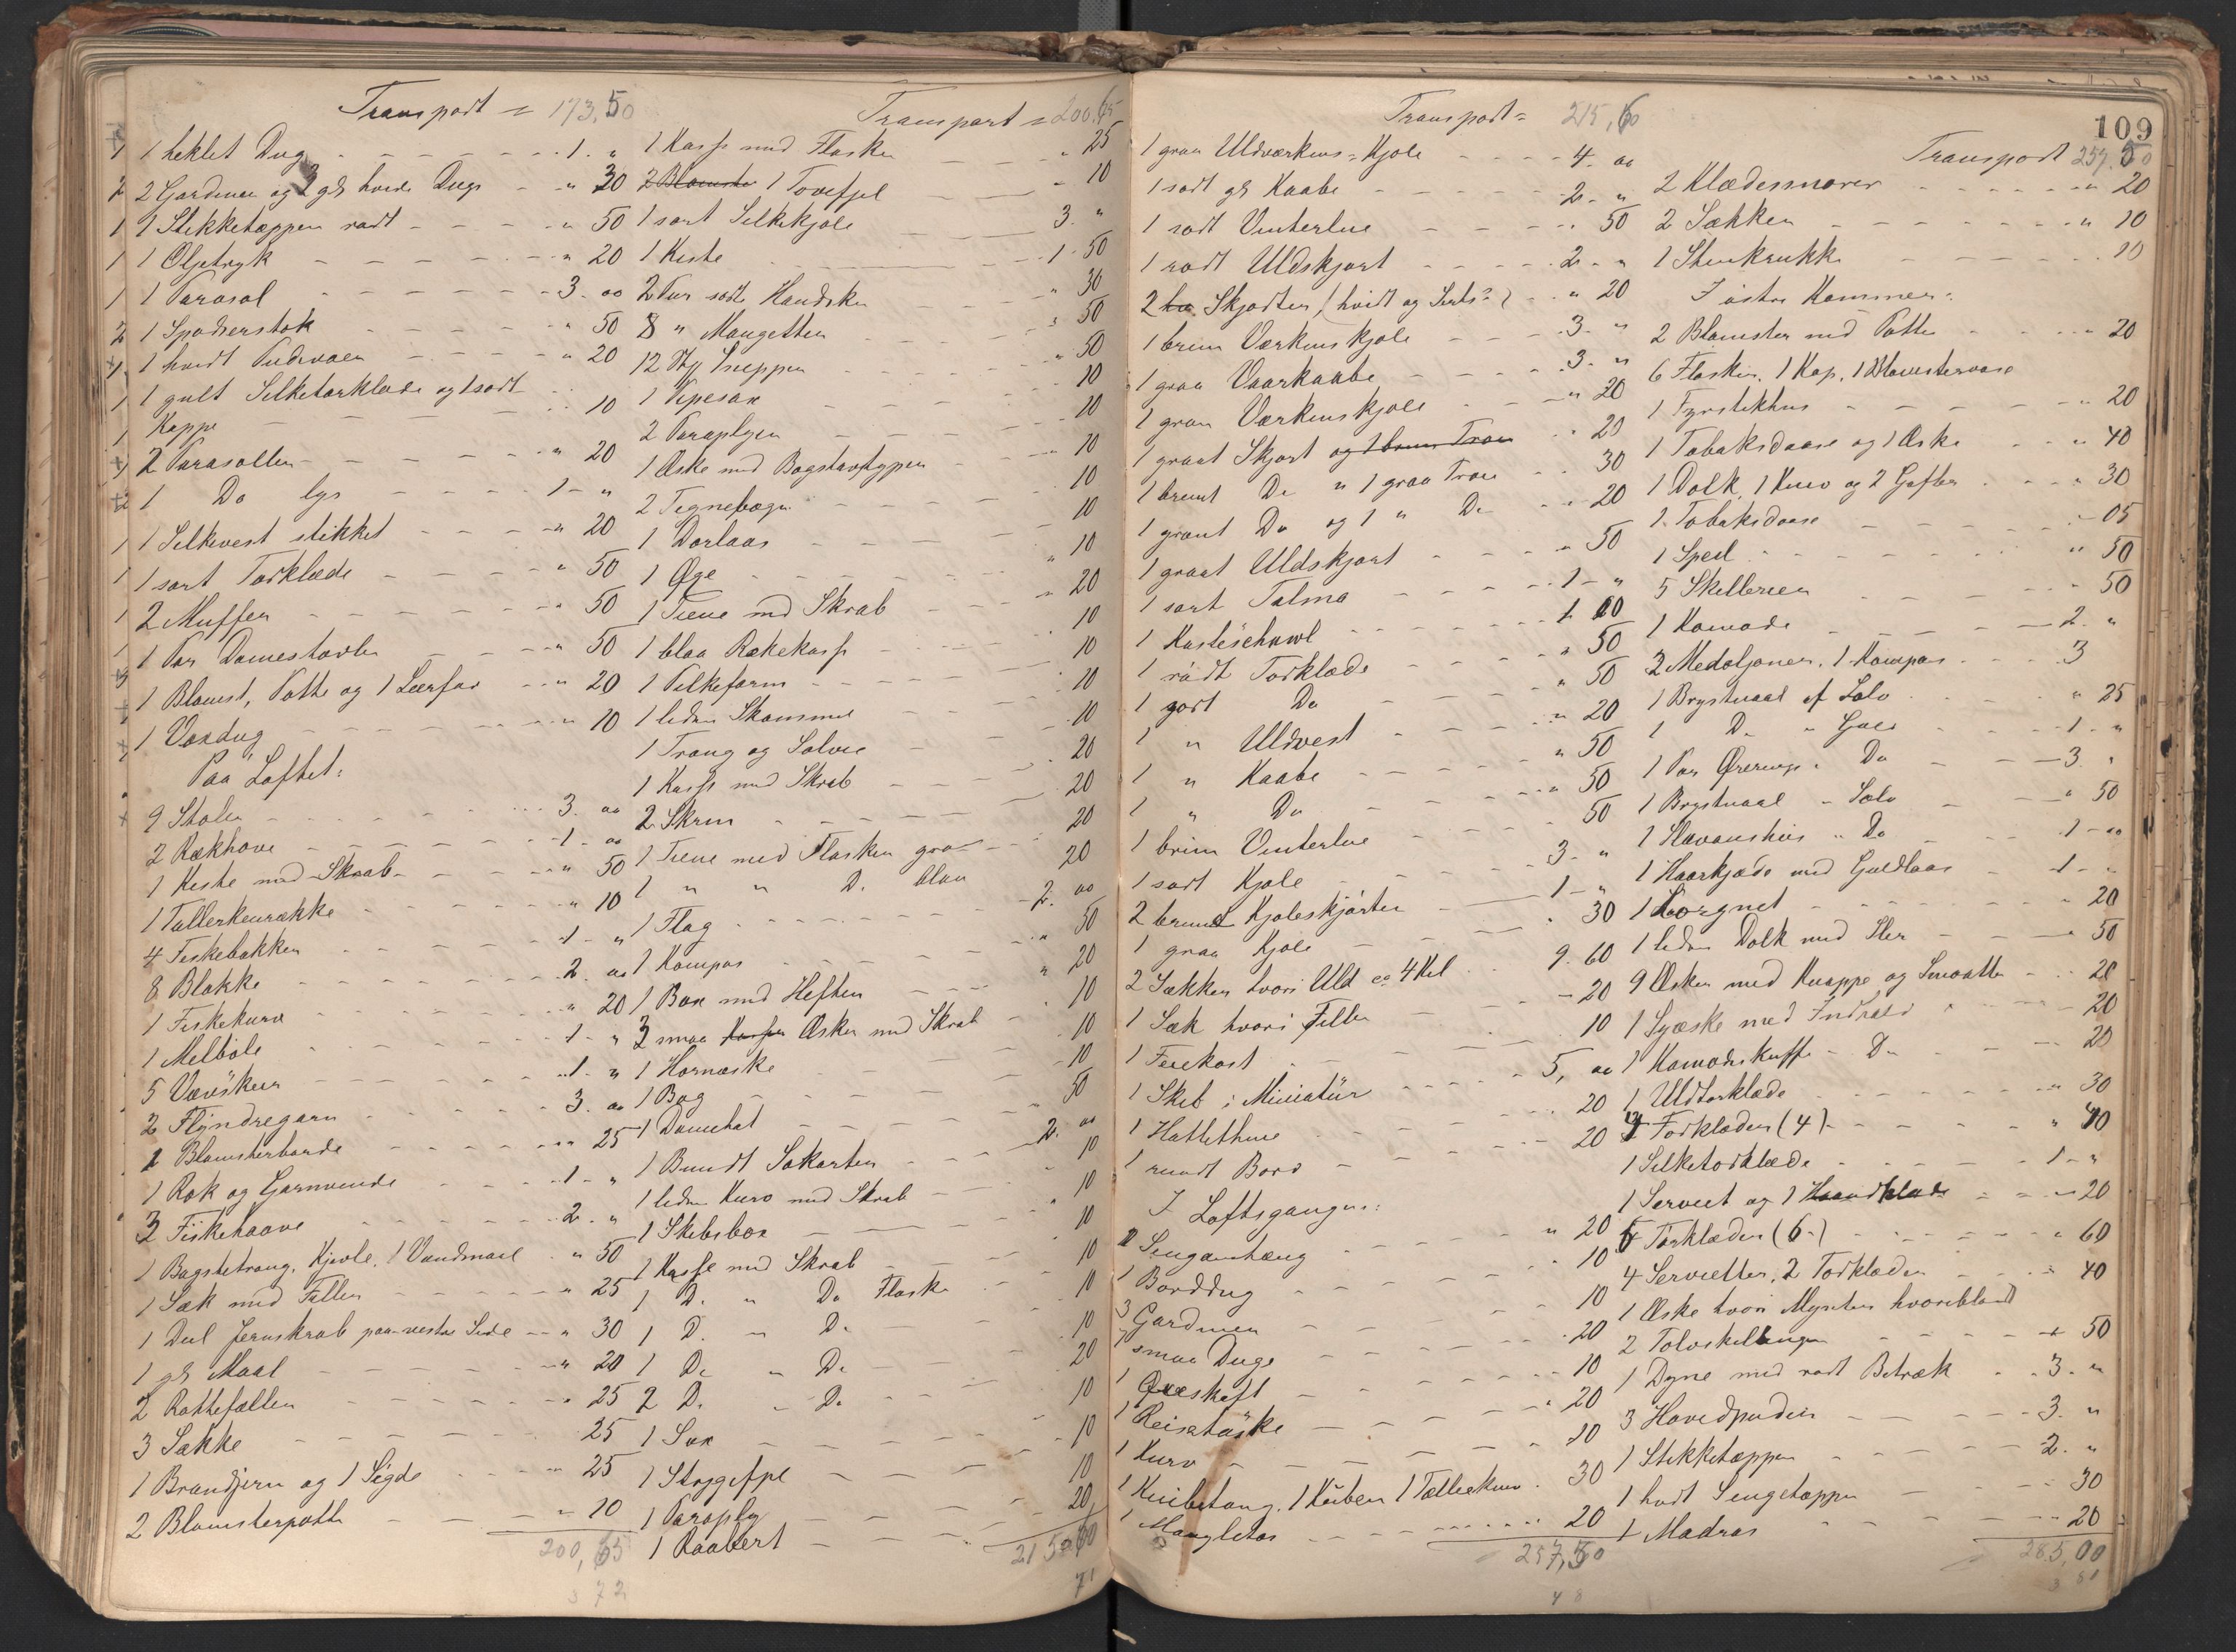 Transport = 173,50
1 heklet Dug 1. "
2 Gardiner og 2 gl hvide Duge " 30
1 Stikketæppen rødt " 50
1 Oljetryk " 20
1 Parasol 3. oo
1 Spadserstok " 50
1 hvidt Pudevaer " 20
1 gult Silketørklæde og 1 sort
Kappe 10
2 Parasoller " 20
1 Do lys 1 - "
1 Silkevest stikket " 20
1 sort Tørklæde " 50
2 Muffer " 50
1 Par Damestøvler " 50
1 Blomst, Potte og 1 Lerfad " 20
1 Voxdug " 10
Paa Loftet:
9 Stoler 3. oo
2 Rækhove 1. oo
1 Kiste med Skrab " 50
1 Tallerkenrække " 10
4 Fiskebakker 1 - "
8 Blakke 2. oo
1 Fiskekurv " 20
1 Melbøle 1 - "
5 Vævskeer 1. "
2 Flyndregarn 3. oo
1 Blomsterborde " 25
1 Rok og Garnvinde 1 - "
3 Fiskehaave 2. "
1 Bagstetrang, Kjevle, 1 Vandmael " 50
1 Sæk med Filler " 25
1 Deel Jernskrab paa vestre Side " 30
1 gl Maal " 20
2 Rottefælder " 25
3 Sække 25
1 Brandjern og 1 Sigde " 25
2 Blomsterpotte " 10
200,65
Transport = 200,65
1 Kasse med Flasker " 25
2 Blomster 1 Tovefjel " 10
1 sort Silkekjole 3. "
1 Kiste 1. 50
2 Par sorte Handsker " 30
8 " Mangetter " 50
12 Stk Snipper " 50
1 Vipesax 10
2 Paraplyer 10
1 Æske med Bogstavtyper " 10
2 Tegnebøger 10
1 Dørlaas 10
1 Øxe " 10
1 Tiene med Skrab " 20
1 blaa Rækekasse 10
1 Pilkeform 10
1 liden Skammel 10
1 Traug og Solvie 10
1 Kasse med Skrab 20
2 Skrin 20
1 Tiene med Flasker graa 20
1 " " Do blaa 20
1 Flag 2. oo
1 Kompas " 50
1 Box med Hefter " 20
3 smaa Æsker med Skrab 10
1 Hornæske 10
1 Bog 10
1 Damehat " 50
1 Bundt Søkarter 2. oo
1 liden Kurv med Skrab 10
1 Skibsbox " 10
1 Kasse med Skrab 10
1 Do " Do Flaske 10
1 Do " Do 10
1 Do " Do 10
2 Do " Do 20
1 Sax 10
1 Strygefjel 10
1 Paraply 10
1 Raabert 20
215,60
Transport = 215,60
1 graa Uldværkens-Kjole 4. oo
1 sort gl Kaabe 2. "
1 sort Vinterlue " 50
1 rødt Uldskjørt 2. "
2 Skjørter (hvidt og Sirts) " 20
1 brun Værkenskjole 3. "
1 graa Vaarkaabe 3. "
1 graa Værkenskjole " 20
1 graat Skjørt og 1 brun Trøie 20
1 brunt Do " 1 graa Trøie 30
1 graat Do og 1 " Do " 20
1 graat Uldskjørt " 50
1 sort Talma 1 - "
1 Kasteschawl 1 00
1 rødt Tørklæde " 50
1 sort Do " 50
1 " Uldvest " 20
1 " Kaabe " 50
1 " Do " 50
1 brun Vinterlue 50
1 sort Kjole 3. "
2 brune Kjoleskjørter 1 - "
1 graa Kjole 30
2 Sækker hvori Uld ca 4 Kil 9. 60
1 Sæk hvori Filler 20
1 Feiekost 10
1 Skib i Miniatür 5, oo
1 Hattethine 20
1 rundt Bord 20
I Loftsgangen:
2 Sengomhæng " 20
1 Borddug 10
3 Gardiner 10
7 smaa Duge 20
1 Øxeskaft 10
1 Reisetaske " 20
1 Kurv 10
1 Knibetang, 1 Kuben 1 Tælleknive 30
1 Mangletøs 20
257,50
109
Transport 257,50
2 Klædessnører " 20
2 Sækker " 10
1 Stenkrukke 10
I østre Kammer:
2 Blomster med Potte " 20
6 Flasker, 1 Kop, 1 Blomstervase
1 Fyrstikhus " 20
1 Tobaksdaase og 1 Æske " 40
1 Dolk, 1 Kniv og 2 Gafler " 30
1 Tobaksdaase - 05
1 Speil " 50
5 Skillerier " 50
1 Komode 2. "
2 Medaljoner, 1 Kompas 3
1 Brystnaal af Sølv " 25
1 Do " Guld 1. "
1 Par Øreringe " Do 3. "
1 Brystnaal " Sølv " 50
1 Hovanshus " Do 1 - oo
1 Haarkjæde med Guldlaas 1 - "
1 Lorgnet " 20
1 liden Dolk med Slir 50
9 Æsker med Knappe og Smaatte 20
1 Syæske med Indhold 20
1 Komodeskuffe - Do 20
1 Uldtørklæde " 30
4 Tørklæder (4) " 40
1 Silketørklæde 1 - "
1 Serviet og 1 Haandklæde 20
6 Tørklæder (6) " 60
4 Servietter, 2 Tørklæder " 40
1 Æske hvori Mynter hvoriblandt
2 Tolvskillinger 50
1 Dyne med rødt Betræk 3. "
3 Hovedpuder 3. "
1 Stikketæppen 2. "
1 hvidt Sengetæppe 30
1 Madras 20
285,00